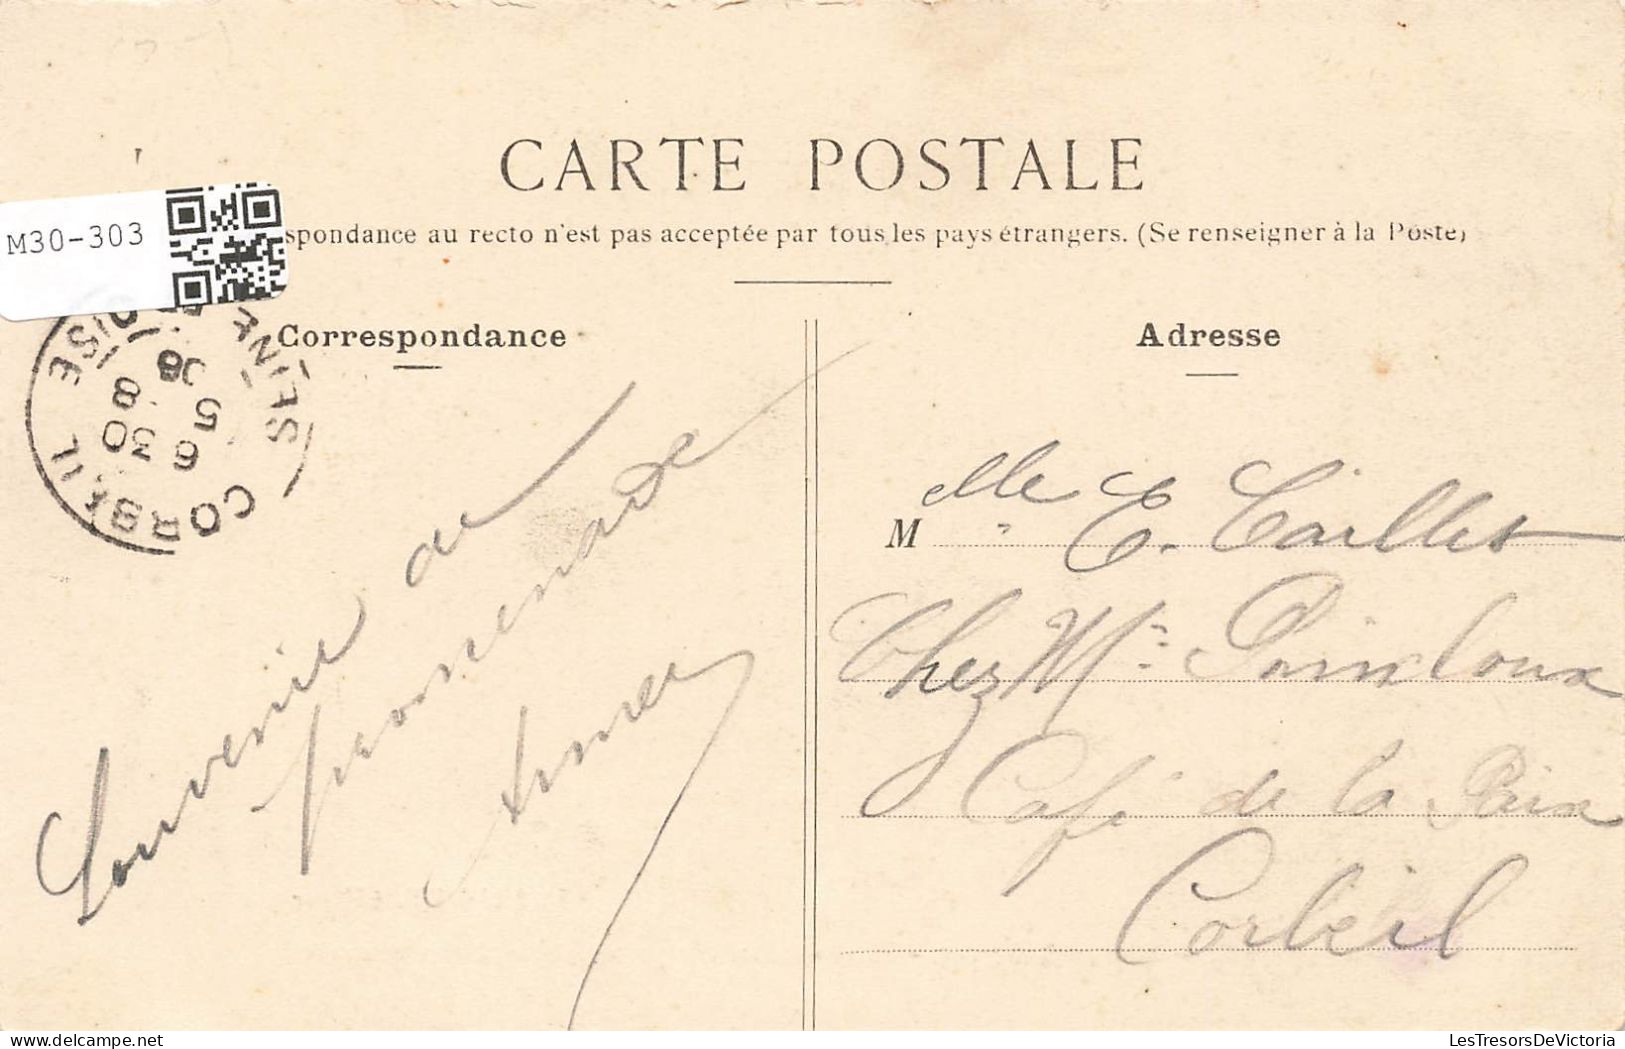 CARTE POSTALE
M30-303
spondance au recto n'est pas acceptée par tous les pays étrangers. (Se renseigner à la Poste)
Correspondance
Adresse
CORBEIL SEINE ET OISE
6 30
5 8
08
Souvenir de
promenade
Aimée
Melle E. Caillet
Chez Mr
Café de la Paix
Corbeil
LesTresorsDeVictoria